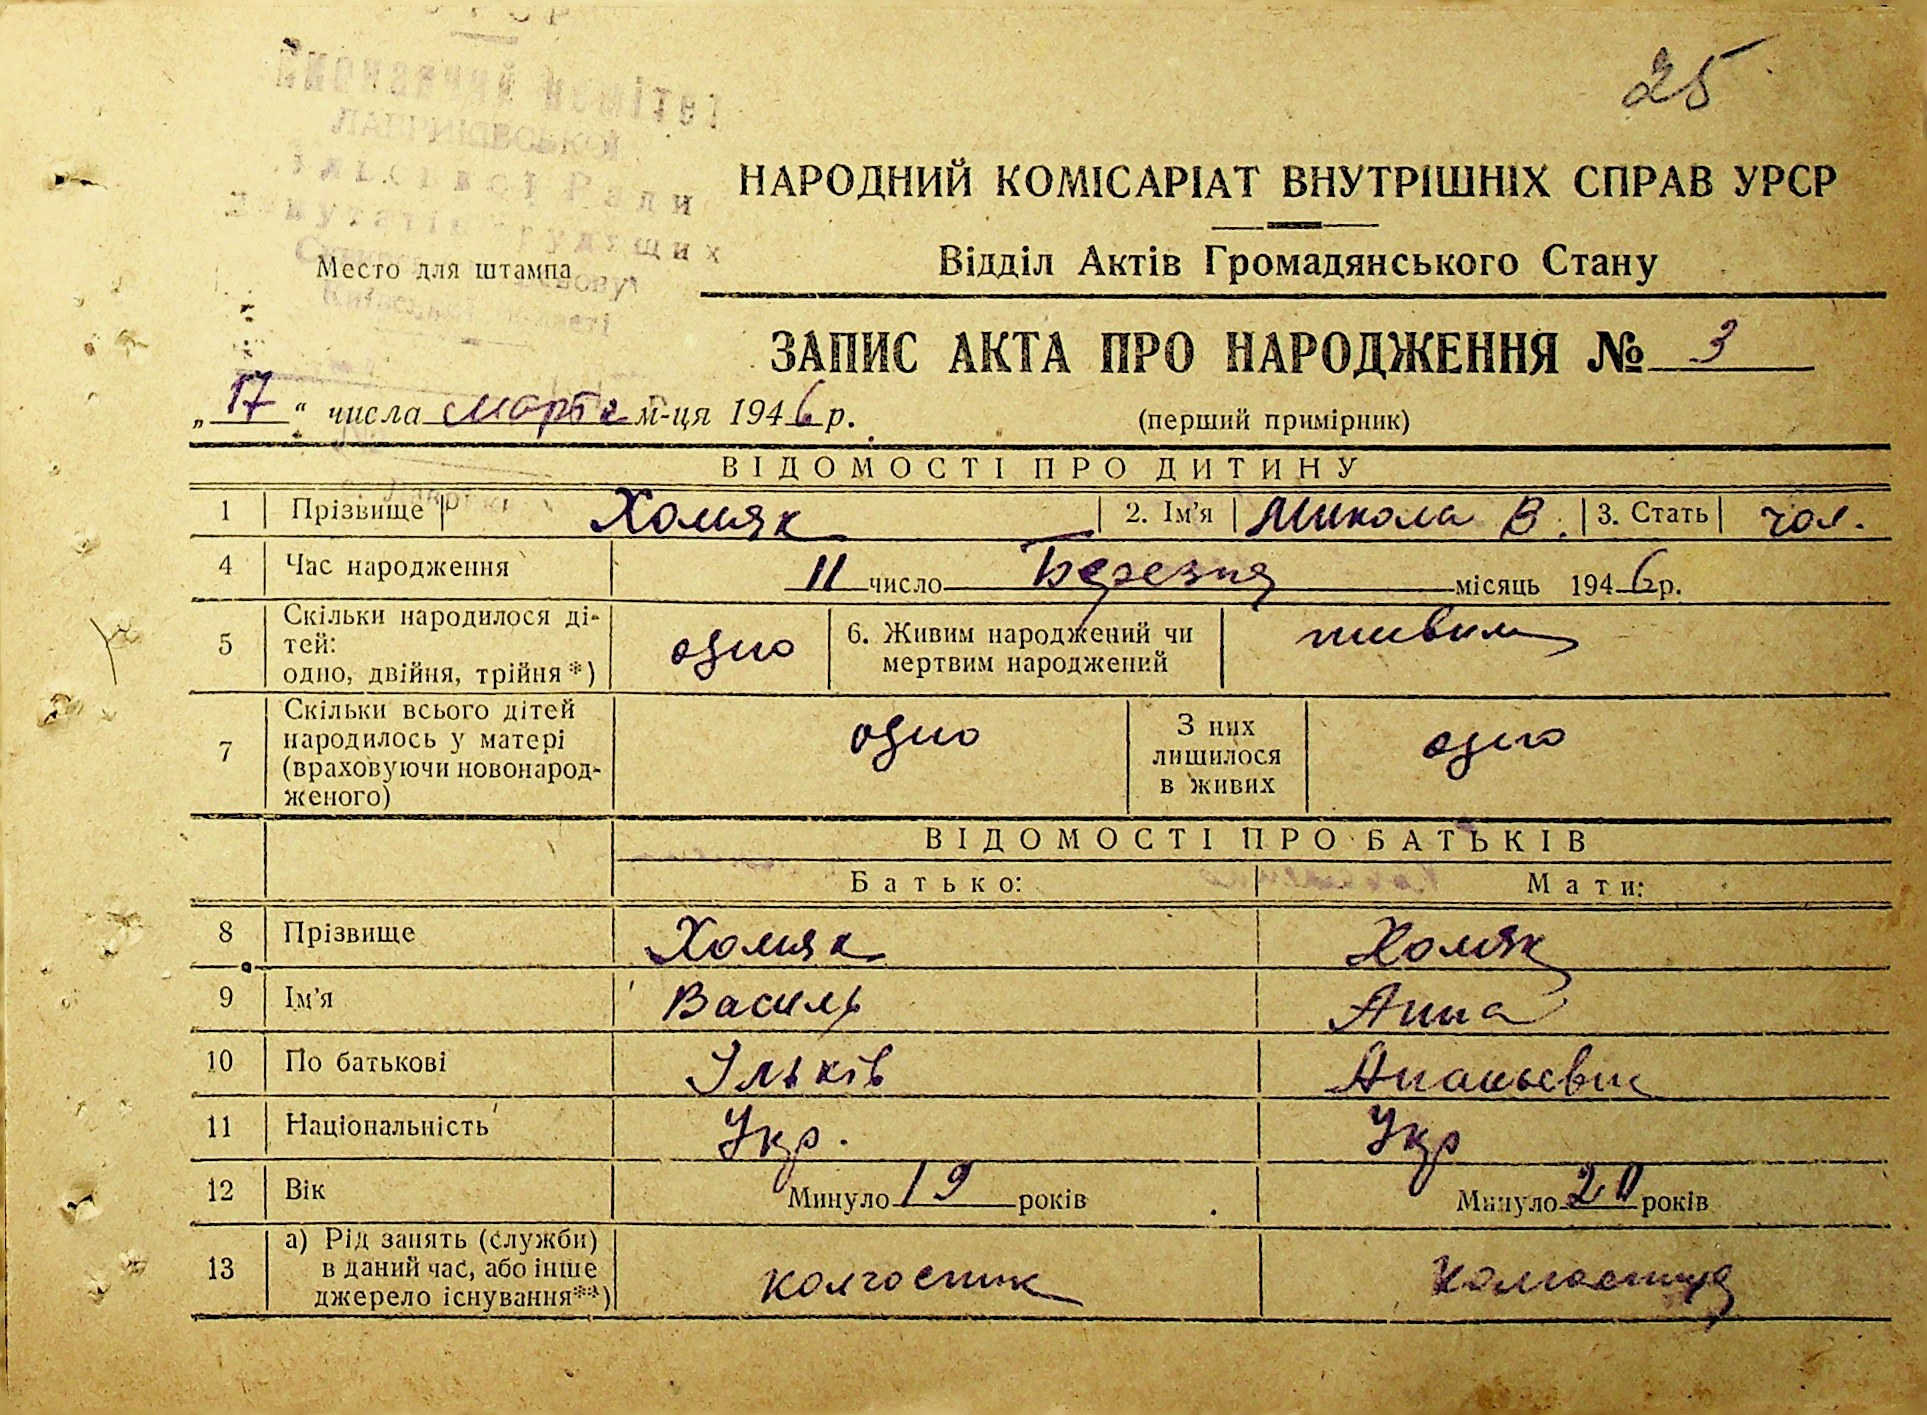 25
Виконавчий Комітет
Ради
НАРОДНИЙ КОМІСАРІАТ ВНУТРІШНІХ СПРАВ УРСР
Відділ Актів Громадянського Стану
Место для штампа
ЗАПИС АКТА ПРО НАРОДЖЕННЯ № 3
„17“ числа марта м-ця 1946 р.
(перший примірник)
ВІДОМОСТІ ПРО ДИТИНУ
1 Прізвище Хомяк 2. Ім'я Микола В. 3. Стать чол.
4 Час народження 11 число Березня місяць 1946 р.
5 Скільки народилося ді-
тей:
одно, двійня, трійня *) одно 6. Живим народжений чи
мертвим народжений живим
7 Скільки всього дітей
народилось у матері
(враховуючи новонарод-
женого) одно З них
лишилося
в живих одно
ВІДОМОСТІ ПРО БАТЬКІВ
Батько: Мати:
8 Прізвище Хомяк Хомяк
9 Ім'я Василь Анна
10 По батькові Ільків
11 Національність Укр. Укр
12 Вік Минуло 19 років Минуло 20 років
13 а) Рід занять (служби)
в даний час, або інше
джерело існування**) колгоспник